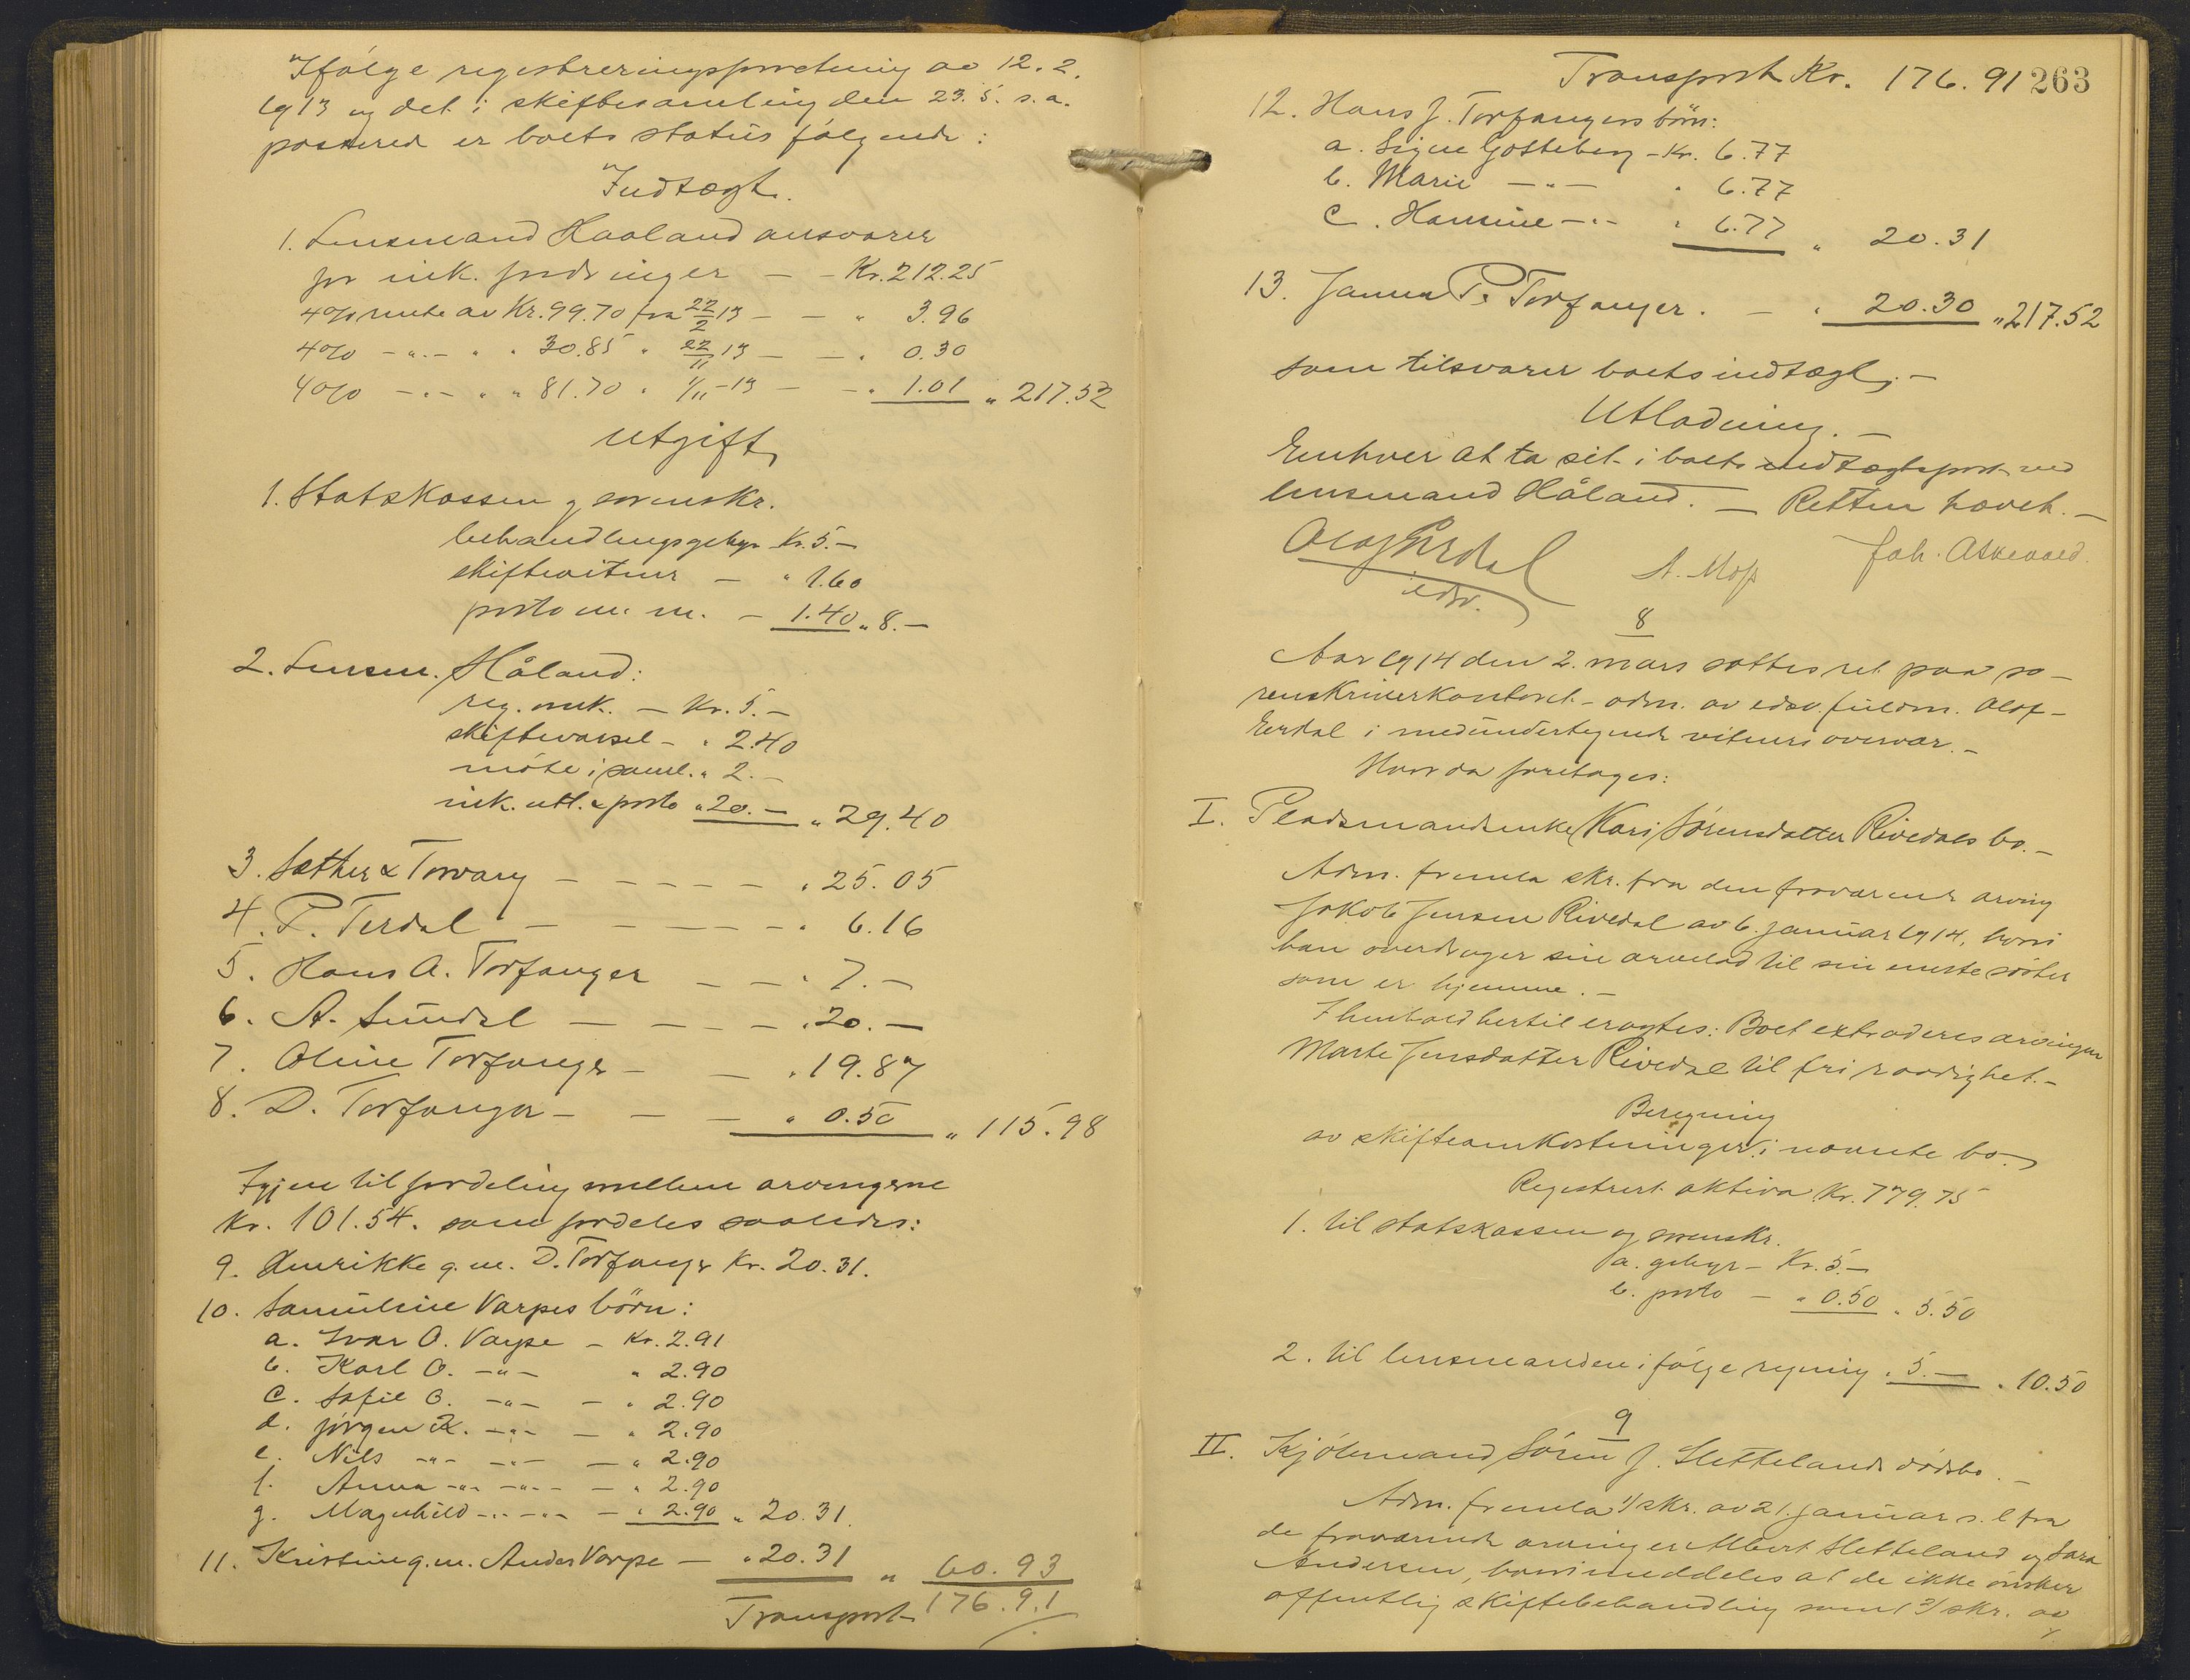 Ifølge registreringsforretning av 12. 2.
1913 og det i skiftesamling den 23. 5. s. a.
passered er boets status følgende:
Indtægt.
1. Lensmand Haaland ansvarer
for ink. fordringer — - Kr. 212.25
4% rente av Kr. 99.70 fra 22/2 13 — — " 3.96
4% - " - " " 30.85 " 22/11 13 — — " 0.30
4% - " - " " 81.70 " 1/11 - 13 — - " 1.01 " 217.52
Utgift
1. Statskassen og sorenskr.
behandlingsgebyr Kr. 5. —
skiftevitner — " 1.60
porto m. m. — 1.40 " 8. —
2. Lensm. Håland:
reg. omk. — Kr. 5. —
skiftevarsel - " 2.40
møte i saml. " 2. -
ink. utl. & porto " 20. — " 29.40
3. Sæther & Torvang - - - - - " 25.05
4. P. Terdal — - — — - " 6.16
5. Hans A. Torfanger — — " 7. —
6. A. Sundal — — — - " 20. —
7. Oline Torfanger — — " 19.87
8. D. Torfanger — — — " 0.50 " 115.98
Igjen til fordeling mellem arvingerne
Kr. 101.54. som fordeles saaledes:
9. Henrikke g. m. D. Torfanger Kr. 20.31.
10. Samuline Varpes börn:
a. Ivar O. Varpe - Kr. 2.91
b. Karl O. - " - " 2.90
c. Sofie O. - " - - " 2.90
d. Jörgen O. - " - — " 2.90
e. Nils - " - - " - — " 2.90
f. Anna - " - - " - — " 2.90
g. Magnhild - " - - " - — " 2.90 " 20.31.
11. Kristine g. m. Anders Varpe — " 20.31 " 60.93
Transport 176.91
Transport Kr. 176.91 263
12. Hans J. Torfangers börn:
a. Signe Gotteberg - Kr. 6.77
b. Marie — " — " 6.77
c. Hansine — " - " 6.77 " 20.31
13. Janna P. Torfanger. — " 20.30 " 217.52
som tilsvarer boets indtægt. —
Utlodning. —
Enhver at ta sit i boets indtægtspost ved
lensmand Håland. — Retten hævet. —
Olaf Erdal
edsv.
A. Moss Joh. Askevold.
8
Aar 1914 den 2. mars sattes ret paa so-
renskriverkontoret - adm. av edsv. fuldm. Olaf -
Erdal i medundertegnede vitners overvær. —
Hvor da foretages:
I. Pladsmandsenke Kari Sørensdatter Rivedals bo. —
Adm. fremla skr. fra den fraværende arving
Jakob Jensen Rivedal av 6. januar 1914, hvori
han overdrager sin arvelod til sin eneste søster
som er hjemme. —
I henhold hertil eragtes: Boet extraderes arvingen
Marte Jensdatter Rivedal til fri raadighet. —
Beregning
av skifteomkostninger i nævnte bo.
Registrert aktiva Kr. 779.75
1. til statskassen og sorenskr.
a. gebyr — Kr. 5. —
b. porto — " 0.50 " 5.50
2. til lensmanden ifølge regning " 5. — " 10.50
9
II. Kjöbmand Sören J. Slettelands dødsbo. —
Adm. fremla 1/ skr. av 21. januar s. l fra
de fraværende arvinger Albert Sletteland og Sara
Andersen, hvori meddeles at de ikke ønsker
offentlig skiftebehandling samt 2/ skr. av